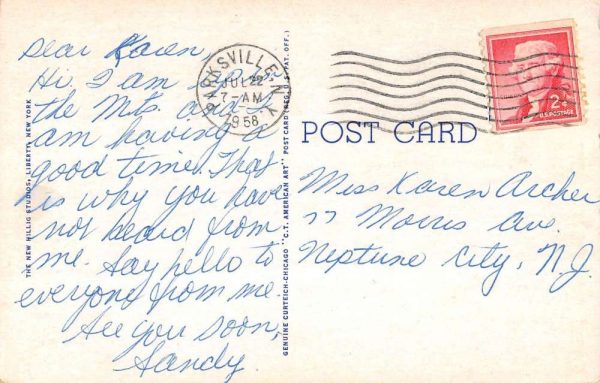 Dear Karen,
Hi. I am up in
the Mts. and
am having a
good time. That
is why you have
not heard from
me. Say hello to
everyone from me.
See you soon,
Sandy.
THE NEW HILLIG STUDIOS, LIBERTY, NEW YORK
GENUINE CURTEICH-CHICAGO "C.T. AMERICAN ART" POST CARD (REG. U.S. PAT. OFF.)
PARKSVILLE, N.Y.
JUL 22
7-AM
1958
POST CARD
2¢
U.S. POSTAGE
Miss Karen Archer
77 Morris Ave.
Neptune City, N.J.